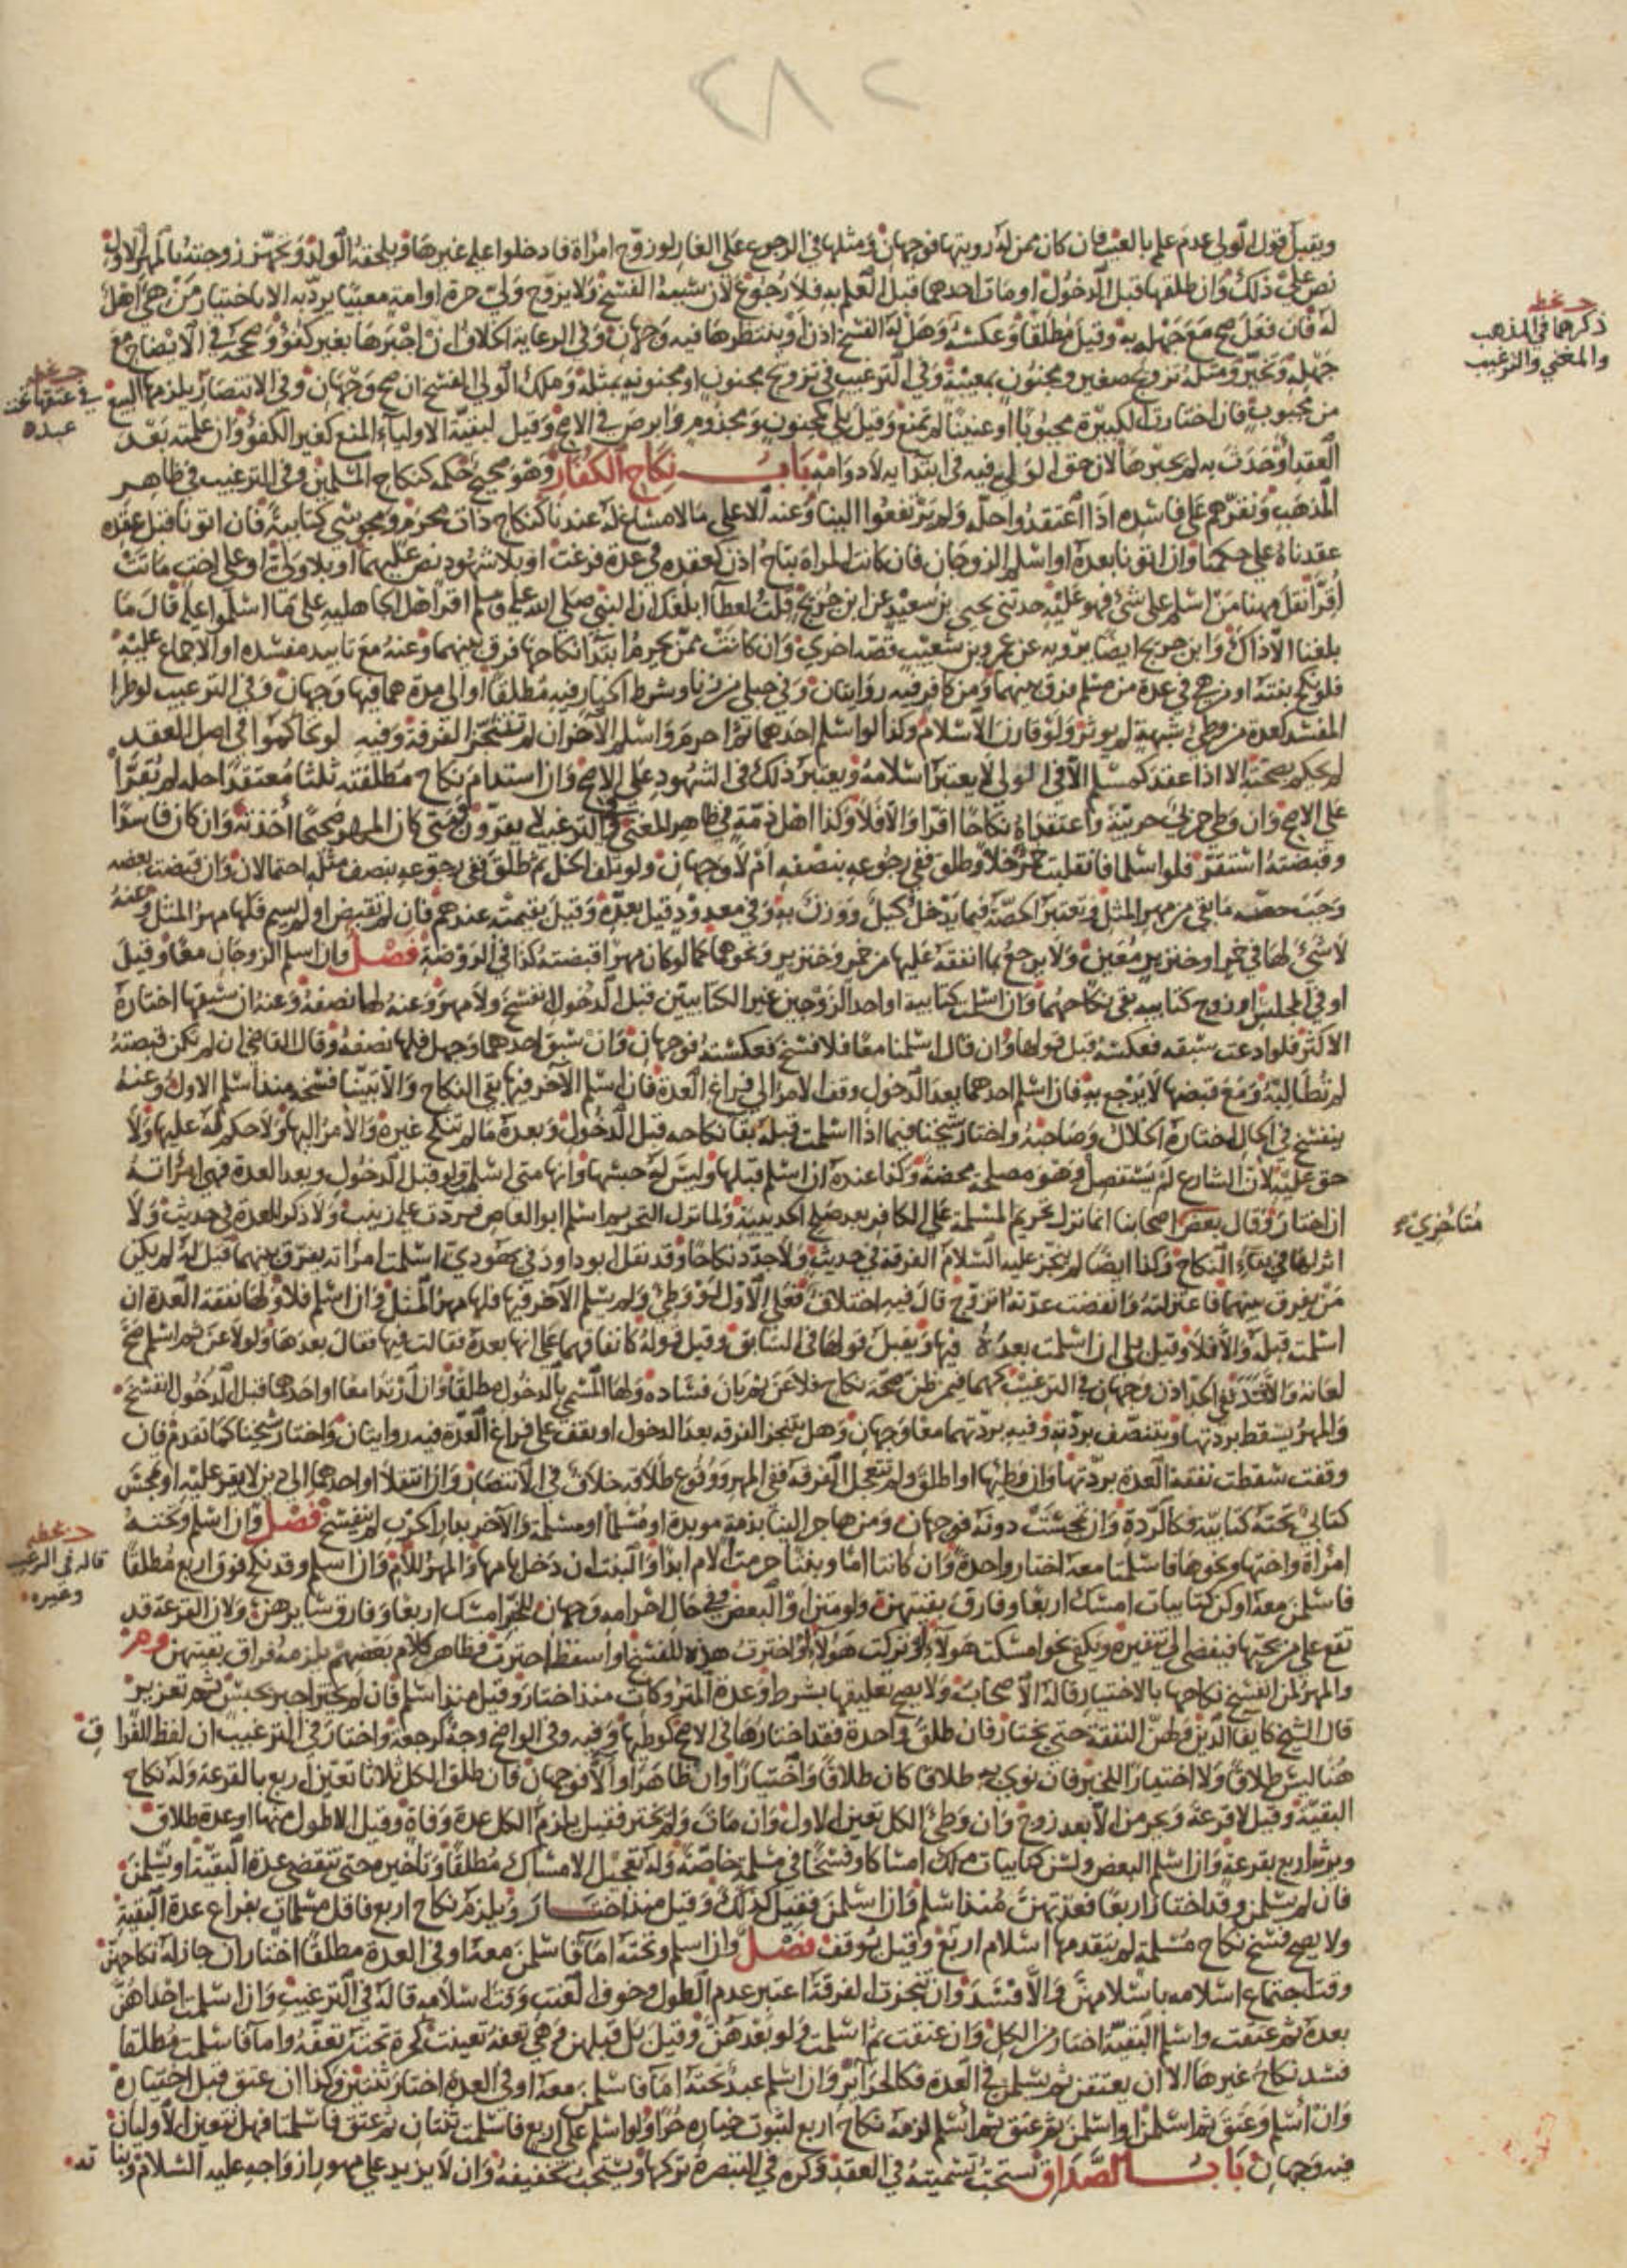 ٢٨٢
ويقبل قول الولي عدم علم بالعيب فان كان ممن له رويتها فوجهان ومثلها في الرجوع على الغار لو زوج امراة فادخلوا عليه غيرها ويلحقه الولد ويجهز زوجته بالمهر الاول
نص على ذلك وان طلقها قبل الدخول او مات احدهما قبل العلم به فلا رجوع لان سببه الفسخ ولا يزوج ولي حرة او امة معيبا يرد به الا باختيار من هي اهل
له فان فعل صح مع جهله به وقيل مطلقا وعكسه وهل له الفسخ اذن او ينتظرها فيه وجهان وفي الرعاية الخلاف ان اجبرها بغير كفؤ وصححه في الايضاح مع
جهله وتخير ومثله تزويج صغير ومجنون بمعيبة وفي الترغيب في تزويج مجنون او مجنونة بمثله وملك الولي الفسخ ان صح وجهان وفي الانتصار يلزمها البيع
من مجبوب فان اختارت الكبيرة مجبوبا او عنينا لم تمنع وقيل بلى كمجنون ومجذوم وابرص في الاصح وقيل لبقية الاولياء المنع كغير الكفؤ وان علمته بعد
العقد او حدث به لم يجبرها لان حق الولي فيه في ابتدائه لا دوامه باب نكاح الكفار وهو صحيح حكمه كنكاح المسلمين وفي الترغيب في ظاهر
المذهب ونقرهم على فاسده اذا اعتقدوا حله ولم يرتفعوا الينا وعنه الا على ما لا مساغ له عندنا كنكاح ذات محرم ومجوسي كتابية فان اتونا قبل عقده
عقدناه على حكمنا وان اتونا بعده او اسلم الزوجان فان كانت المراة تباح اذن كعقده في عدة فرغت او بلا شهود نص عليهما او بلا ولي او على اخت ماتت
اقرا نقل مهنا من اسلم على شئ فهو عليه حدثني يحيى بن سعيد عن ابن جريج قلت لعطا ابلغك ان النبي صلى الله عليه وسلم اقر اهل الجاهلية على ما اسلموا عليه قال ما
بلغنا الا ذاك وابن جريج ايضا يرويه عن عمرو بن شعيب قصة اخرى وان كانت ممن يحرم ابتدا نكاحها فرق بينهما وعنه مع تابيد مفسده او الاجماع عليه
فلو نكح بنته او من هي في عدة من مسلم فرق بينهما ومن كافر فيه روايتان وفي حبلى من زنا وشرط الخيار فيه مطلقا او الى مدة هما فيها وجهان وفي الترغيب لو طرا
المفسد كعدة من وطئ شبهة لم يوثر ولو قارن الاسلام وكذا لو اسلم احدهما ثم احرم واسلم الاخر ان لم تتنجز الفرقة وفيه لو تحاكموا في اصل العقد
لم يحكم بصحته الا اذا عقد كمسلم الا في الولي لا يعتبر اسلامه ويعتبر ذلك في الشهود على الاصح وان استدام نكاح مطلقته ثلثا معتقدا حله لم يقرا
على الاصح وان وطئ حربي حربية واعتقداه نكاحا اقرا والا فلا وكذا اهل ذمة في ظاهر المغني وفي الترغيب لا يقرون ومتى كان المهر صحيحا اخذته وان كان فاسدا
وقبضته استقر فلو اسلما فانقلبت خمر خلا وطلق ففي رجوعه بنصفه ام لا وجهان ولو تلف الخل ثم طلق ففي رجوعه بنصف مثله احتمالان وان قبضت بعضه
وجبت حصة ما بقي من مهر المثل وتعتبر الحصة فيما يدخل كيل ووزن به وفي معدود قيل بعده وقيل بقيمته عندهم فان لم تقبض او لم يسم فلها مهر المثل وعنه
لا شئ لها في خمر او خنزير معين ولا يرجع بما انفقه عليها من خمر وخنزير ونحوهما كما لو كان مهرا قبضته كذا في الروضة فصل وان اسلم الزوجان معا وقيل
او في المجلس او زوج كتابية بقي نكاحهما وان اسلمت كتابية او احد الزوجين غير الكتابيين قبل الدخول انفسخ ولا مهر وعنه لها نصفه وعنه ان سبقها اختاره
الاكثر فلو ادعت سبقه فعكسه قبل قولها وان قال اسلمنا معا فلا فسخ فعكسته فوجهان وان سبق احدهما وجهل فلها نصفه وقال القاضي ان لم تكن قبضته
لم تطالبه ومع قبضها لا يرجع به فان اسلم احدهما بعد الدخول وقف الامر الى فراغ العدة فان اسلم الاخر فيها بقي النكاح والا تبينا فسخه منذ اسلم الاول وعنه
ينفسخ في الحال اختاره الخلال وصاحبه واختار شيخنا فيما اذا اسلمت قبله بقا نكاحه قبل الدخول وبعده ما لم تنكح غيره والامر اليها ولا حكم له عليها ولا
حق عليه لان الشارع لم يستفصل وهو مصلحة محضة وكذا عنده ان اسلم قبلها وليس له حبسها وانها متى اسلمت ولو قبل الدخول وبعد العدة فهي امراته
ان اختار وقال بعض اصحابنا انما نزل تحريم المسلمة على الكافر بعد صلح الحديبية ولما نزل التحريم اسلم ابو العاص فردت عليه زينب ولا ذكر للعدة في حديث ولا
اثر لها في بقاء النكاح وكذا ايضا لم ينجز عليه السلام الفرقة في حديث ولا جدد نكاحا وقد نقل ابو داود في يهودي اسلمت امراته يفرق بينهما قيل له لم يكن
من يفرق بينهما فاعتزلته وانقضت عدتها تزوج قال فيه اختلاف فعلى الاول لو وطئ ولم يسلم الاخر فيها فلها مهر المثل وان اسلم فلا ولها نفقة العدة ان
اسلمت قبله والا فلا وقيل بلى ان اسلمت بعده فيها ويقبل قولها في السابق وقيل قوله كاتفاقهما على انها بعده فقالت فيها فقال بعدها ولو لاعن ثم اسلم صح
لعانه والا فسد ففي الحد اذن وجهان في الترغيب كهما فيمن ظن صحة نكاح فلاعن ثم بان فساده ولها المسمى بالدخول مطلقا وان ارتدا معا او احدهما قبل الدخول انفسخ
والمهر يسقط بردتها ويتنصف بردته وفيه بردتهما معا وجهان وهل تتنجز الفرقة بعد الدخول او يقف على فراغ العدة فيه روايتان واختار شيخنا كما تقدم فان
وقفت سقطت نفقة العدة بردتها وان وطئها او اطلق ولم تتعجل الفرقة ففي المهر ووقوع طلاقه خلاف في الانتصار وان انتقلا او احدهما الى دين لا يقر عليه او تمجس
كتابي تحته كتابية فكالردة وان تمجست دونه فوجهان ومن هاجر الينا بذمة موبدة او مسلما او مسلمة والاخر بدار الحرب لم ينفسخ فصل وان اسلم وتحته
امراة واختها ونحوها فاسلمتا معه اختار واحدة وان كانتا اما وبنتا حرمت الام ابدا والبنت ان دخل بامها والمهر للام وان اسلم وقد نكح فوق اربع مطلقا
فاسلمن معه او كن كتابيات امسك اربعا وفارق بقيتهن ولو متن او البعض وفي حال احرامه وجهان امسك اربعا وفارق سايرهن ولان القرعة قد
تقع على من يحبها فيفضي الى تنفيره ويكفي نحو امسكت هولاء او تركت هولاء او اخترت هذه للفسخ او اسقط اخترت فظاهر كلام بعضهم يلزمه فراق بقيتهن
والمهر لمن انفسخ نكاحها بالاختيار قاله الاصحاب ولا يصح تعليقها بشرط وعدة المتروكات منذ اختار وقيل منذ اسلم فان لم يختر اجبر بحبس ثم تعزير
قال الشيخ كايفا الدين ولهن النفقة حتى يختار فان طلق واحدة فقد اختارها في الاصح كوطئها وفيه وفي الواضح وجه كرجعة واختار في الترغيب ان لفظ الفراق
هنا ليس طلاقا ولا اختيارا للخبر فان نوى به طلاقا كان طلاقا واختيارا وان ظاهر او الا فوجهان فان طلق الكل ثلاثا تعين اربع بالقرعة وله نكاح
البقية وقيل لا قرعة ويحرمن الا بعد زوج وان وطئ الكل تعين الاول وان مات ولم يختر فقيل يلزم الكل عدة وفاة وقيل الاطول منها او عدة طلاق
ويرثه اربع بقرعة وان اسلم البعض ولسن كتابيات ملك امساكا وفسخا في مسلمة خاصة وله تعجيل الامساك مطلقا وتاخيره حتى تنقضي عدة البقية او يسلمن
فان لم يسلمن وقد اختار اربعا فعدتهن منذ اسلم وان اسلمن فقيل كذلك وقيل منذ اختار ويلزم نكاح اربع فاقل مسلمات بفراغ عدة البقية
ولا يصح فسخ نكاح مسلمة لم يتقدمها اسلام اربع وقيل يوقف فصل وان اسلم وتحته اما فاسلمن معه او في العدة مطلقا اختار ان جاز له نكاحهن
وقت اجتماع اسلامه باسلامهن والا فسد وان تنجزت الفرقة اعتبر عدم الطول وخوف العنت وقت اسلامه قاله في الترغيب وان اسلمت احداهن
بعده ثم عتقت واسلم البقية اختار من الكل وان عتقت ثم اسلمت ولو بعدهن وقيل بل قبلهن وهي تعفه تعينت كحرة تحته تعفه واما فاسلمت مطلقا
فسد نكاح غيرها الا ان يعتقن ثم يسلمن في العدة فكالحرائر وان اسلم عبد تحته اما فاسلمن معه او في العدة اختار ثنتين وكذا ان عتق قبل اختياره
وان اسلم وعتق ثم اسلمن او اسلمن ثم عتق ثم اسلم لزمه نكاح اربع لثبوت خياره حرا ولو اسلم على اربع فاسلمت ثنتان ثم عتق فاسلمتا فهل تتعين الاوليان
فيه وجهان باب الصداق تستحب تسميته في العقد وكره في التبصرة تركها ويستحب تخفيفه وان لا يزيد على مهور ازواجه عليه السلام وبناته
ذكرهما في المذهب
والمغني والترغيب
في عتقها تحت
عبده
متاخري
قاله في الرعاية
وغيره